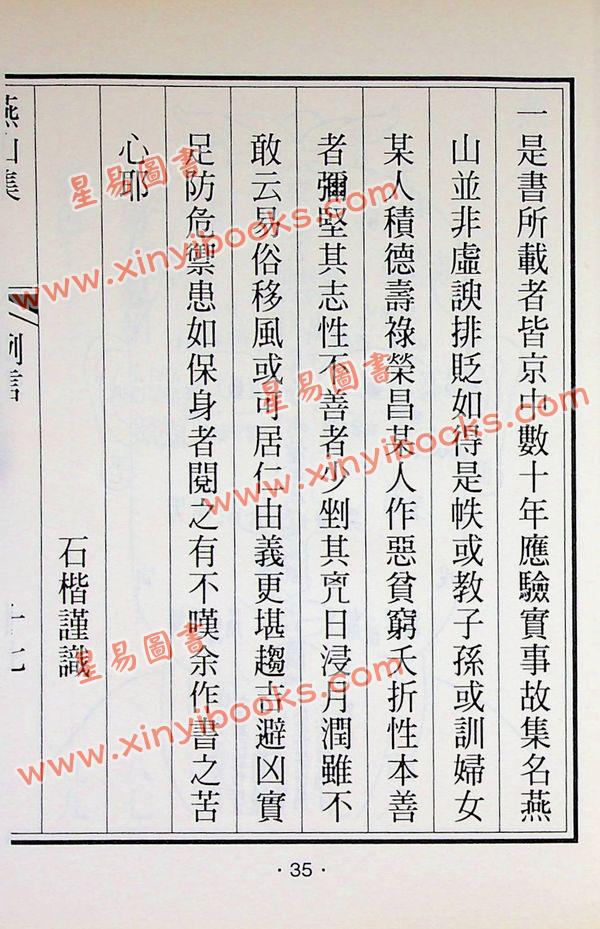 一是書所載者皆京中數十年應驗實事故集名燕
山並非虛諛排貶如得是帙或教子孫或訓婦女
某人積德壽祿榮昌某人作惡貧窮夭折性本善
者彌堅其志性不善者少剉其兇日浸月潤雖不
敢云易俗移風或可居仁由義更堪趨吉避凶實
足防危禦患如保身者閱之有不嘆余作書之苦
心耶
石楷謹識
燕山集
例言
十七
·35·
星易圖書
www.xinyibooks.com
星易圖書
www.xinyibooks.com
星易圖書
www.xinyibooks.com